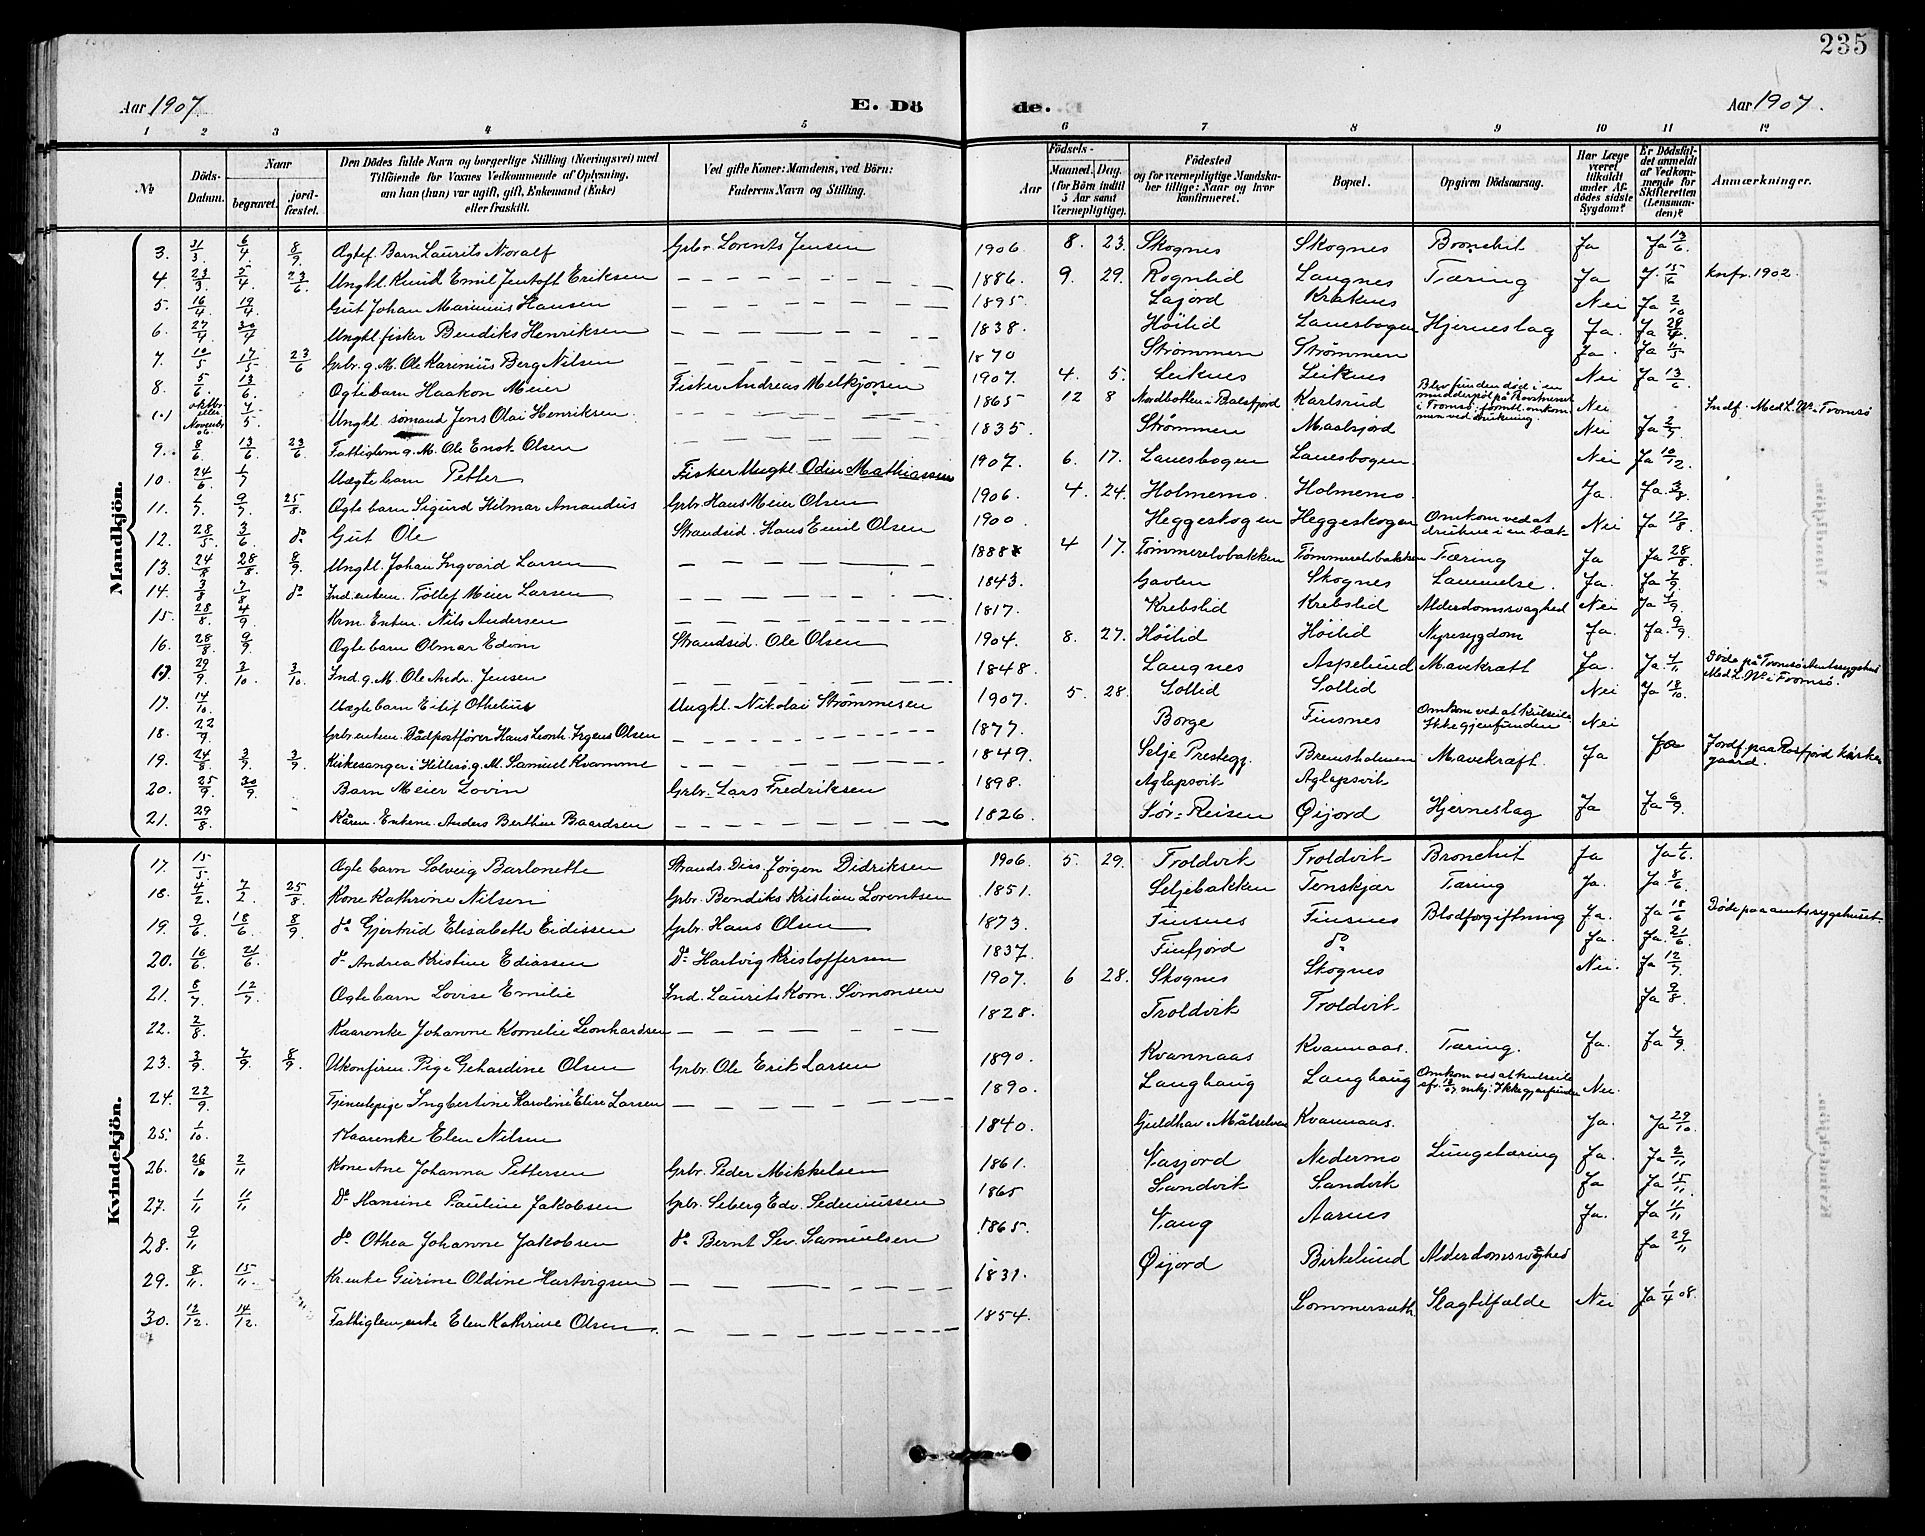 235
Aar 1907. E. Dö de. Aar 1907.
1 2 3 4 5 6 7 8 9 10 11 12
No
Döds-Datum.
Naar
begravet.
jord-fæstet.
Den Dödes fulde Navn og borgerlige Stilling (Næringsvei) med
Tilföiende for Voxnes Vedkommende af Oplysning,
om han (hun) var ugift, gift, Enkemand (Enke)
eller fraskilt.
Ved gifte Koner: Mandens, ved Börn:
Faderens Navn og Stilling.
Födsels-
Aar
Maaned. Dag.
(for Börn indtil
5 Aar samt
Værnepligtige).
Födested
og for værnepligtige Mandska-
ber tillige: Naar og hvor
konfirmeret.
Bopæl.
Opgiven Dödsaarsag.
Har Læge
været
tilkaldt
under Af-
dödes sidste
Sygdom?
Er Dödsfal-
det anmeldt
af Vedkom-
mende for
Skifteretten
(Lensman-
den)?
Anmærkninger.
Mandkjön.
3. 31/3 6/4 8/9 Ægtef. Barn Laurits Noralf Grbr. Lorents Jensen 1906 8. 23. Skognes Skognes Bronchit Ja Ja 13/6
4. 23/3 2/4 23/6 Ungkl. Knud Emil Jentoft Eriksen 1886. 9. 29. Rognlid Laugnes Tæring Ja J. 15/6 Konfr. 1902.
5. 16/4 19/4 Gut Johan Marinius Hansen 1895. Lajord Kraknes Nei Ja 2/10
6. 27/4 30/4 Ungkl fisker Bendiks Henriksen 1838. Höilid Lanesbogen Hjerneslag Ja. Ja 28/4
7. 10/5 17/5 23/6 Grbr. g. M. Ole Karenius Berg Nilsen 1870 Strømmen Strømmen Ja. Ja 11/5
8. 5/6 13/6 Ægte barn Haakon Meier Fisker Andreas Melkjorsen 1907. 4. 5. Leiknes Leiknes Nei Ja 13/6
oktbr. eller Novembr 06 4/5 Ungkl. sömand Jens Olai Henriksen. 1865 12 8 Nordbotten i Balsfjord Karlsrud Blev funden död i en mudderpöl på i Tromsö, formtl. omkommen ved drukning. Nei Indf. Med L. No. Tromsö
9. 8/6 13/6 23/6 Fattiglem g. M. Ole Enok Olsen 1835. Strømmen Maalsjord Nei Ja 2/7
10. 24/6 1/7 Uægte barn Petter Fisker Ungkl. Odin Mathiassen 1907. 6. 17. Lanesbogen Lanesbogen. Nei Ja 10/12
11. 1/7 9/7 25/8 Ægte barn Sigurd Hilmar Amandus Grbr. Hans Meier Olsen 1906. 4. 24. Holmemo. Holmemo. Ja. Ja. 3/7
12. 28/5 3/6 do. Gut Ole Strandsid. Hans Emil Olsen 1900. Heggeskogen Heggeskogen Omkom ved at drukne i en bæk Nei Ja 12/8
13. 24/8 28/8 8/9 Ungkl. Johan Ingvard Larsen 1888 4 17. Tømmerelvbakken Tømmerelvbakken Tæring Ja Ja 28/8
14. 3/8 7/8 do Ind. enkem. Tollef Meier Larsen 1843. Gavlen Skognes Lammelse. Ja. Ja 7/9
15. 28/8. 4/9. Krm. Enkm. Nils Andersen 1817. Krebslid Krebslid Alderdomssvaghed Nei Ja 4/9.
16. 28/8 9/9. Ægte barn Olmar Edvin Strandsid. Ole Olsen 1904. 8. 27. Höilid Höilid Nyresygdom Ja. Ja. 9/9
29/9. 3/10 3/10 Ind. g. M. Ole Andr. Jensen 1848. Laugnes Aspelund Mavekræft Ja. Ja 4/11 Döde på Tromsö Amtssygehus Med L. No. i Tromsö.
17. 14/10 Uægte barn Eilif Othelius Ungkl. Nikolai Strømmesen 1907. 5. 28. Sollid Sollid Nei Ja 18/10
18. 22/9. Grbr. enkem. Bådpostförer Hans Leonh. Irgens Olsen 1877. Borge Finsnes Omkom ved at kulseile Ikke gjenfunden Nei
19. 24/8 3/9 3/9. Kirkesanger i Hillesö g. M. Samuel Kvamme 1849. Selje Prestegj. Bremsholmen Mavekræft. Ja Ja Jordf. paa Rosfjord kirkegaard.
20. 25/9 30/9. Barn Meier Lovin Grbr. Lars Fredriksen 1898. Aglapsvik Aglapsvik
21. 29/8. Kåren. Enkem. Anders Berthin Baardsen 1826. Sör-Reisen Øijord Hjerneslag Ja Ja 6/9.
Kvindekjön.
17. 15/5. Ægte barn Solveig Barlonette Strands. Diss. Jørgen Didriksen 1906. 5. 29. Troldvik Troldvik Bronchit Ja Ja 1/6.
18. 4/2. 7/2. 25/8 Kone Kathrine Nilsen Grbr. Bendiks Kristian Lorentsen 1851. Seljebakken Tenskjær Tæring Ja. Ja. 8/6
19. 9/6 18/6 8/9 do Gjertrud Elisabeth Eidissen Grbr. Hans Olsen 1873. Finsnes Finsnes Blodforgiftning Ja. Ja 18/6 Döde paa amtssygehuset.
20. 16/6 21/6. do Andrea Kristine Ediassen Do Hartvig Kristoffersen 1837. Finfjord do Ja. Ja. 21/6.
21. 8/7 12/7. Ægte barn Lovise Emilie Ind. Laurits Korn. Simonsen 1907. 6 28. Skognes Skognes Nei. Ja 12/7.
22. 2/8. Kaarenke Johanne Kornelie Leonhardsen 1828. Troldvik Troldvik Ja 9/8.
23. 3/9. 7/9. 8/9 Ukonfirm. Pige Gehardine Olsen Grbr. Ole Erik Larsen 1890. Kvannaas Kvannaas. Tæring. Ja. Ja 7/9
24. 22/9. Tjenestepige Ingbertine Karoline Elise Larsen 1890. Langhaug Langhaug Omkom ved at kulseile Ikke gjenfunden Nei.
25. 1/10. Kaarenke Elen Nilsen 1840. Guldhav i Målselven Kvannaas. Ja. Ja 29/10.
26. 26/10 2/11 Kone Ane Johanna Pettersen Grbr. Peder Mikkelsen 1861. Vasjord Nedermo Lungetæring Ja. Ja 2/11
27. 1/11 11/11 Do Hansine Pauline Jakobsen Grbr. Seberg Edv. Sedeniussen 1865 Sandvik Sandvik Ja Ja 15/11
28. 9/11 do Othea Johanne Jakobsen do Bernt Sev. Samuelsen 1865. Vang Aarnes Ja. Ja 11/11
29. 8/11. 15/11. Kr. enke Gurine Oldine Hartvigsen 1831. Øijord Birkelund Alderdomssvaghed Ja 29/11
30. 12/12. 14/12. Fattiglem enke Elen Kathrine Olsen. 1854. Sommersæth Slagtilfælde Nei Ja 1/4 08.